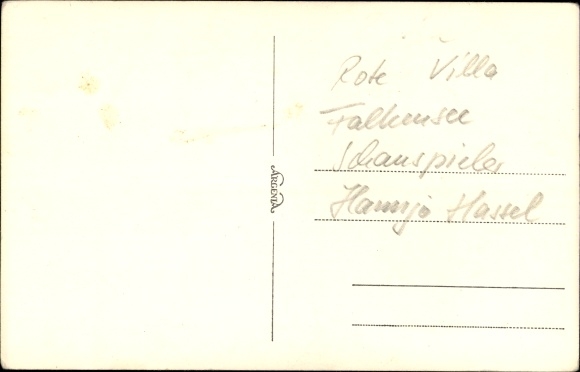 Rote Villa
Falkensee
Schauspieler
Hannjo Hassel
ARGENTA